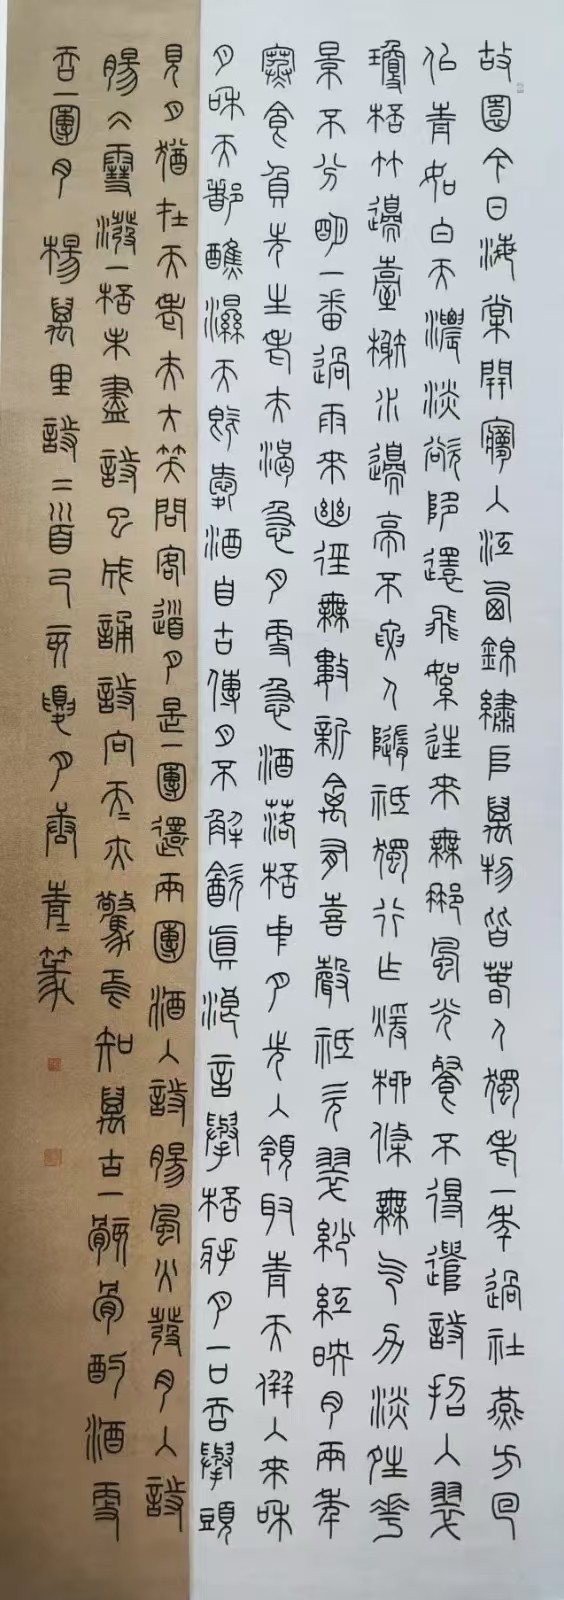 故園今日海棠開夢入江西錦繡堆萬物皆春人獨老一年過社燕方回
似青如白天濃淡欲墮還飛絮往來無那風光餐不得遣詩招入翠
瓊杯竹邊臺榭水邊亭不要人隨祇獨行乍暖柳條無气力淡晴花
景不分明一番過雨來幽徑無數新禽有喜聲祇欠翠紗紅映肉兩年
寒食負先生老夫渴急月更急酒落杯中月先入領取青天併入來和
月和天都蘸濕天既愛酒自古傳月不解飲真浪言舉杯將月一口吞舉頭
見月猶在天老夫大笑問客道月是一團還兩團酒入詩腸風火發月入詩
腸冰雪潑一杯未盡詩已成誦詩向天天亦驚焉知萬古一骸骨酌酒更
吞一團月 楊萬里詩首己亥夏月 青篆